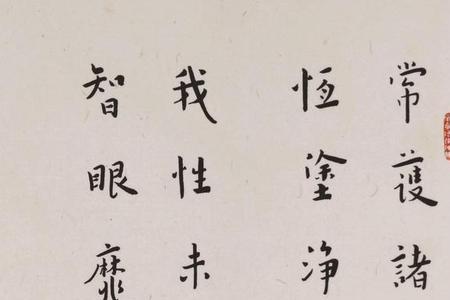 常護諸
恆塗淨
我性未
智眼靡